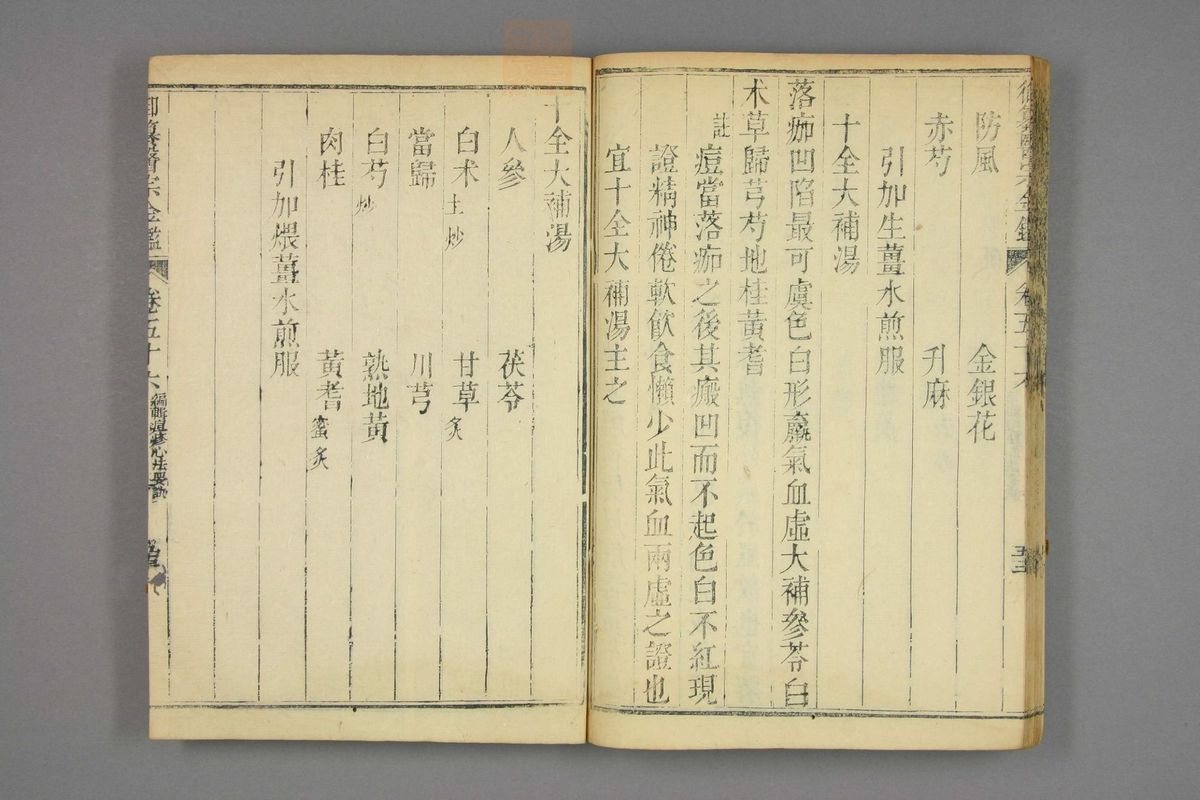 防風 金銀花
赤芍 升麻
引加生薑水煎服
十全大補湯
落痂凹陷最可虞色白形羸氣血虛大補參苓白
术草歸芎芍地桂黃耆
註 痘當落痂之後其瘢凹而不起色白不紅現
證精神倦軟飲食懶少此氣血兩虛之證也
宜十全大補湯主之
十全大補湯
人參 茯苓
白术 土炒 甘草 炙
當歸 川芎
白芍 炒 熟地黃
肉桂 黃耆 蜜炙
引加煨薑水煎服
御纂醫宗金鑑 卷五十六 編輯痘疹心法要訣